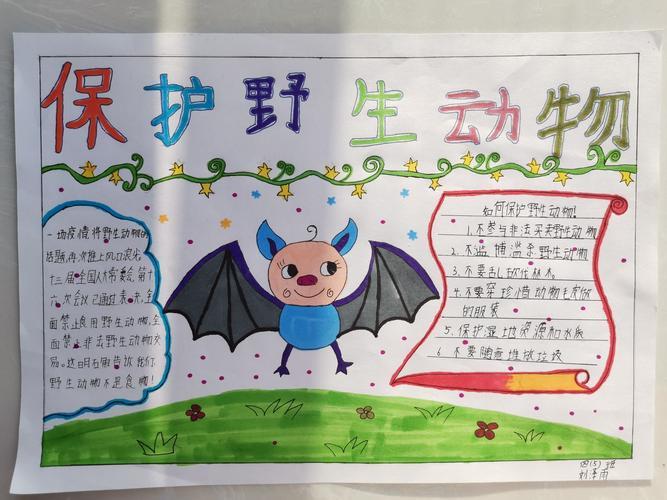 保护野生动物
一场疫情将野生动物的
话题再次推上风口浪尖
十三届全国人大常委会第十
六次会议已通过表决,全
面禁止食用野生动物,全
面禁止非法野生动物交
易。这明确告诉我们
野生动物不是食物!
如何保护野生动物!
1.不参与非法买卖野生动物
2.不滥捕滥杀野生动物
3.不要乱砍伐林木
4.不要穿珍惜动物毛皮做
的服装
5.保护湿地资源和水质
6 不要随意堆放垃圾
四(5)班
刘泽雨